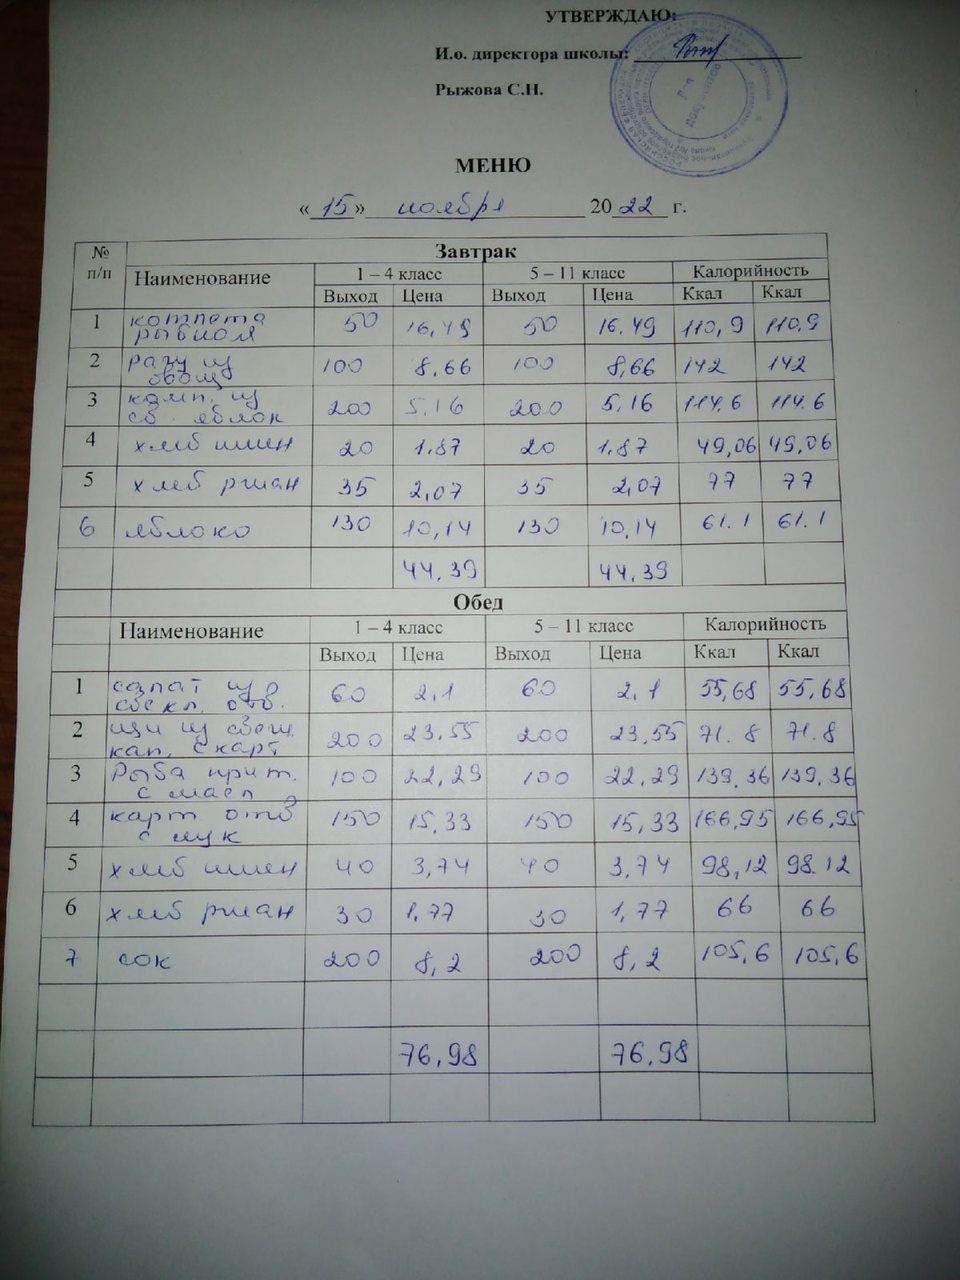 УТВЕРЖДАЮ:
И.о. директора школы:
Рыжова С.Н.
Для документов
МЕНЮ
«15» ноября 2022 г.
№ п/п
Завтрак
Наименование 1 – 4 класс 5 – 11 класс Калорийность
Выход Цена Выход Цена Ккал Ккал
1 котлета рыбная 50 16,49 50 16.49 110,9 110,9
2 рагу из овощ 100 8,66 100 8,66 142 142
3 комп. из св яблок 200 5,16 200 5,16 114.6 114.6
4 хлеб пшен 20 1,87 20 1,87 49,06 49,06
5 хлеб ржан 35 2,07 35 2,07 77 77
6 яблоко 130 10,14 130 10,14 61.1 61.1
44,39 44,39
Обед
Наименование 1 – 4 класс 5 – 11 класс Калорийность
Выход Цена Выход Цена Ккал Ккал
1 салат из свекл. отв. 60 2,1 60 2,1 55,68 55,68
2 щи из свеж. кап. с карт 200 23,55 200 23,55 71.8 71.8
3 Рыба прип. с масл 100 22,29 100 22,29 139,36 139,36
4 карт отв с лук 150 15,33 150 15,33 166,95 166,95
5 хлеб пшен 40 3,74 40 3,74 98,12 98.12
6 хлеб ржан 30 1,77 30 1,77 66 66
7 сок 200 8,2 200 8,2 105,6 105,6
76,98 76,98